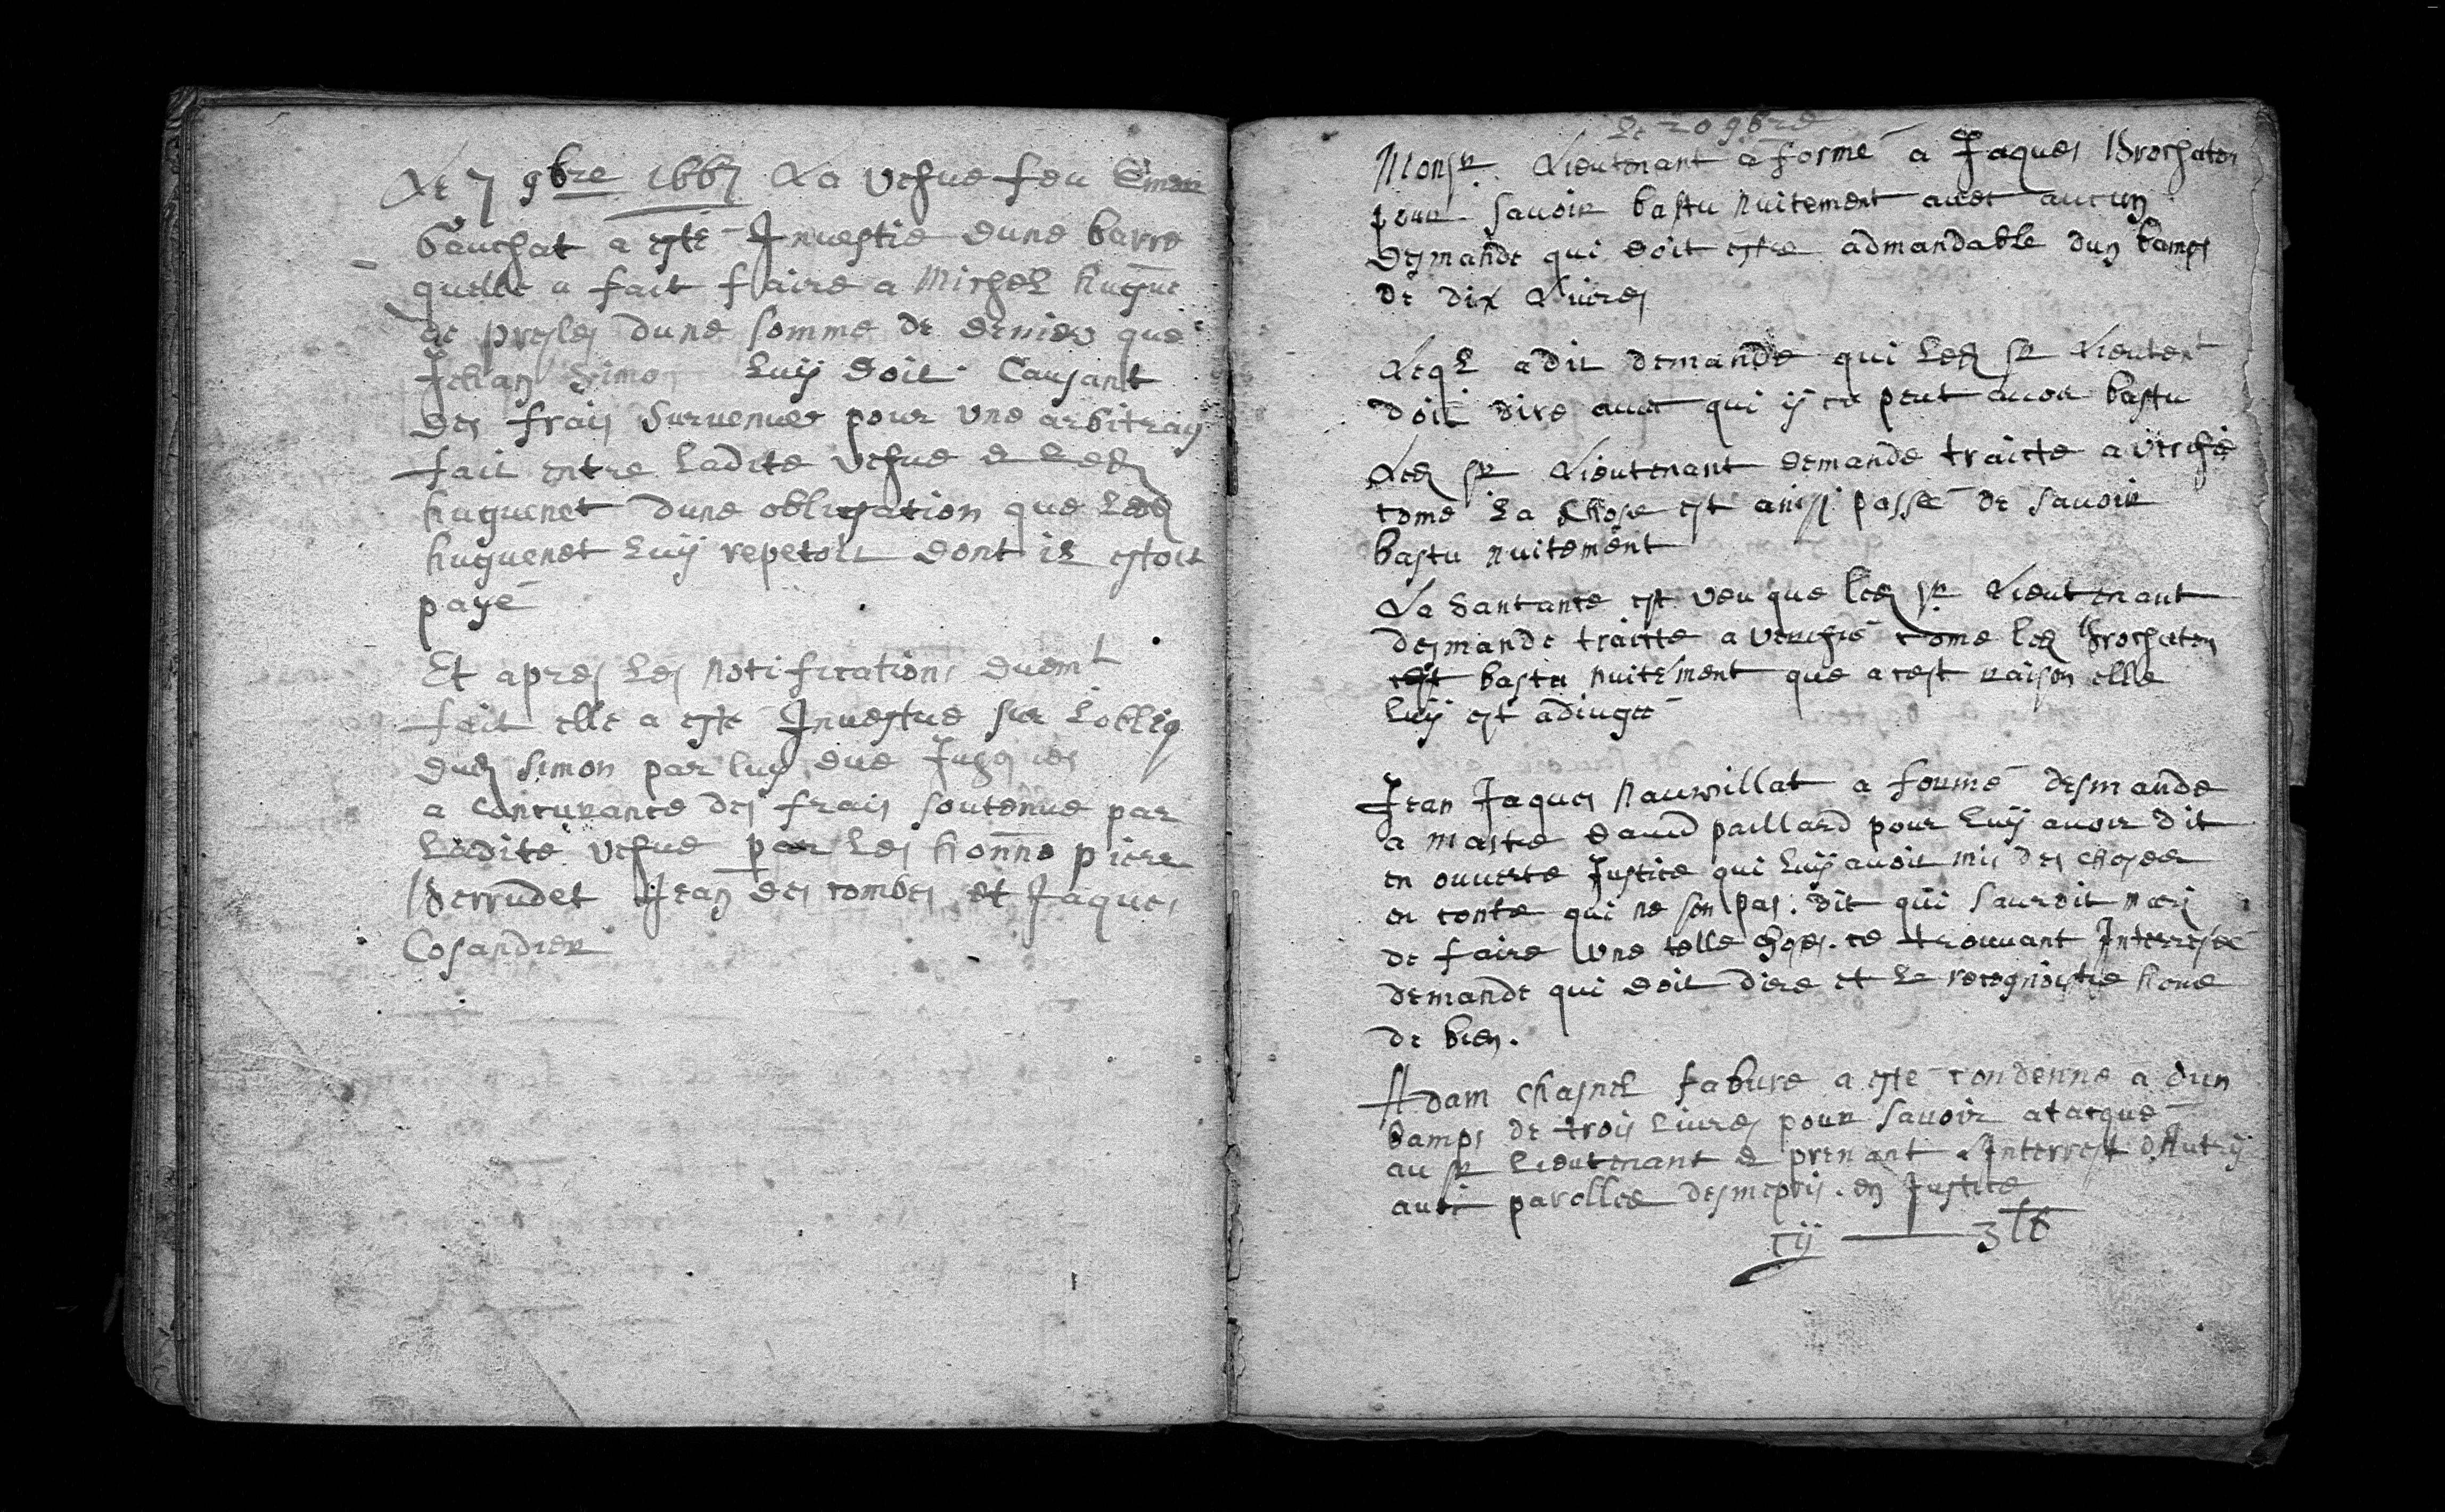 Le 7 9bre 1667 La vefue feu Emon
bauchat a esté Inuestie dune barre
quelle a fait faire a Michel hugue
de presles dune somme de deniers que
Jehan Simon Luÿ doit Causant
des frais Suruenues pour une arbitrag
fait entre Ladite vefue & Led
huguenet dune obligation que Led
huguenet Luÿ repetoit dont il estoit
payé
Et apres Les notifications duemt
fait elle a esté Inuestue sur Loblig
dud Simon par luy due Jusques
a Concurance des frais soutenue par
Ladite vefue par Les honne piere
Berrudet Jean des combes et Jaques
Cosandier
Le 20 9bre
Monsr. Lieutenant a formé a Jaques Brochaton
pour sauoir bastu nuitement auec aucun
desmande qui doit estre admandable dun bamps
de dix Liures
Leql a dit demande qui Led Sr Lieutent
doit dire auec qui ÿ ce peut auoir bastu
Led Sr Lieutenant demande traitte a verifié
come La chose est ainsi passé de sauoir
bastu nuitement
La Santance est veu que led Sr Lieutenant
desmande traitte a verifié come led Brochaton
cest bastu nuitement que a cest raison elle
luÿ est adiugee
Jean Jaques Nauwillat a formé desmande
a maitre Dauid paillard pour luÿ auoir dit
en ouuerte Justice qui luÿ auoit mis des choses
en conte qui ne son pas. dit qui sauroit mari
de faire une telle chose. ce trouuant Interesse
demande qui doit dire et le recognoistre hone
de bien.
Adam Chasnel fabure a esté condenne a dun
bamps de trois Liures pour sauoir atacque
au Sr Lieutenant & prenant LInterrest dAutruÿ
auec parolles desmepris. en Justice
cÿ 3 lb